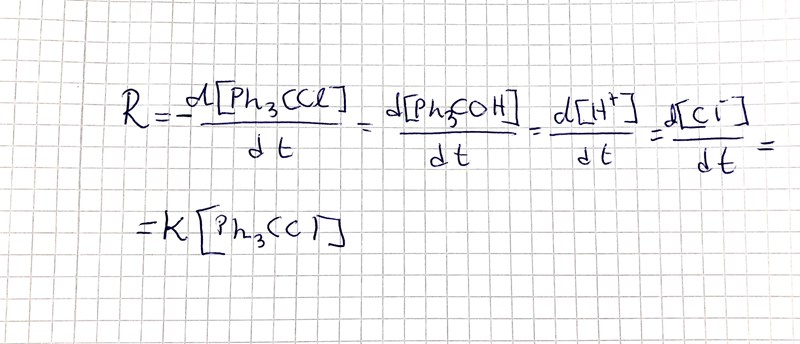 R = -d[Ph₃CCl]/dt = d[Ph₃COH]/dt = d[H⁺]/dt = d[Cl⁻]/dt =
= K[Ph₃CCl]